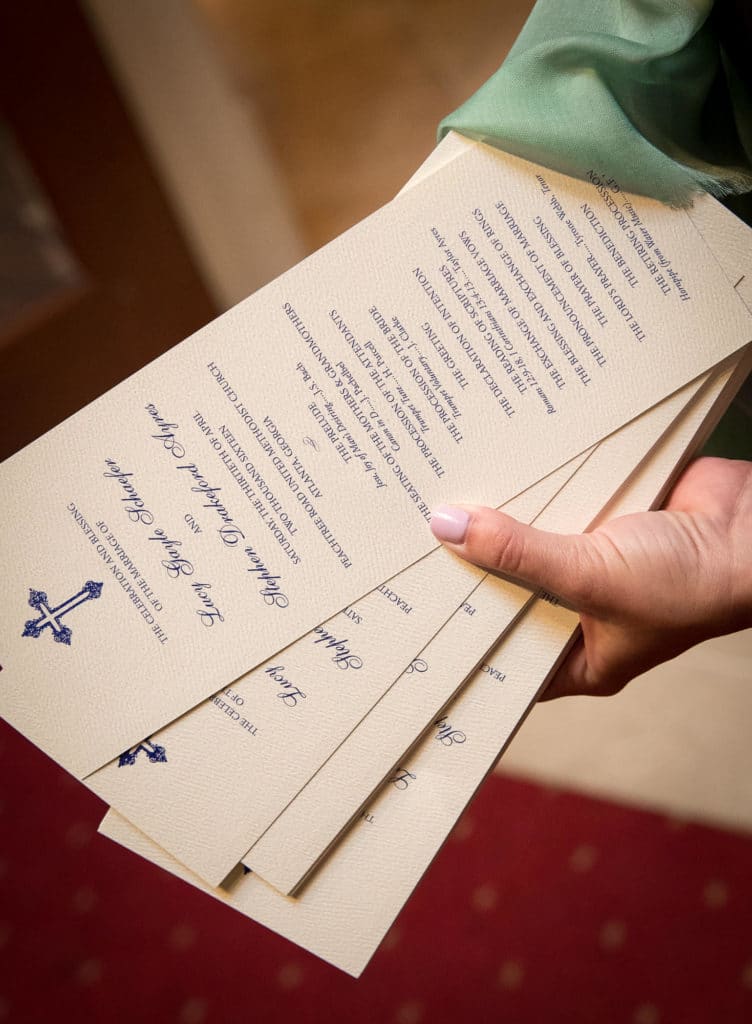 THE CELEBRATION AND BLESSING
OF THE MARRIAGE OF
Lucy Gayle Schaefer
AND
Stephen Drakeford Ayres
SATURDAY, THE THIRTIETH OF APRIL
TWO THOUSAND SIXTEEN
PEACHTREE ROAD UNITED METHODIST CHURCH
ATLANTA, GEORGIA
THE PRELUDE
Jesu, Joy of Man's Desiring....J.S. Bach
THE SEATING OF THE MOTHERS & GRANDMOTHERS
Canon in D....J. Pachelbel
THE PROCESSION OF THE ATTENDANTS
Trumpet Tune....H. Purcell
THE PROCESSION OF THE BRIDE
Trumpet Voluntary....J. Clarke
THE GREETING
THE DECLARATION OF INTENTION
THE READING OF SCRIPTURES
Romans 12:9-18, I Corinthians 13:4-13....Taylor Ayres
THE EXCHANGE OF MARRIAGE VOWS
THE BLESSING AND EXCHANGE OF RINGS
THE PRONOUNCEMENT OF MARRIAGE
THE PRAYER OF BLESSING
THE LORD'S PRAYER.....Tyrone Webb, Tenor
THE BENEDICTION
THE RETIRING PROCESSION
Hornpipe (from Water Music)....G.F.
THE CELEBR
OF TH
Lucy
Stephe
SAT
PEACHT
PEA
PEAC